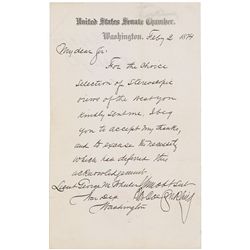 United States Senate Chamber.
Washington, Feby 2 1874
My dear Sir
For the choice
selection of stereoscopic
views of the West you
kindly sent me, I beg
you to accept my thanks,
and to excuse the necessity
which has deferred this
acknowledgement.
Lieut George M. Wheeler
War Dep
Washington